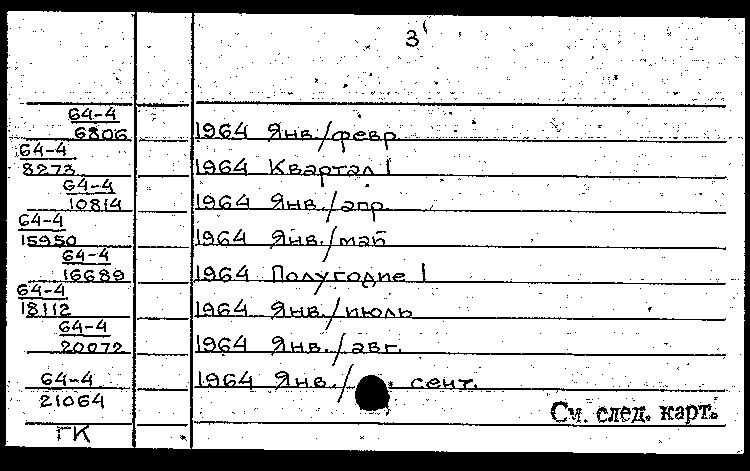 3
64-4
6806 1964 Янв./февр
64-4
8273 1964 Квартал I
64-4
10814 1964 Янв./апр.
64-4
15950 1964 Янв./май
64-4
16689 1964 Полугодие I
64-4
18112 1964 Янв./июль
64-4
20072 1964 Янв./авг.
64-4 1964 Янв./ сент.
21064
См. след. карт.
ГК